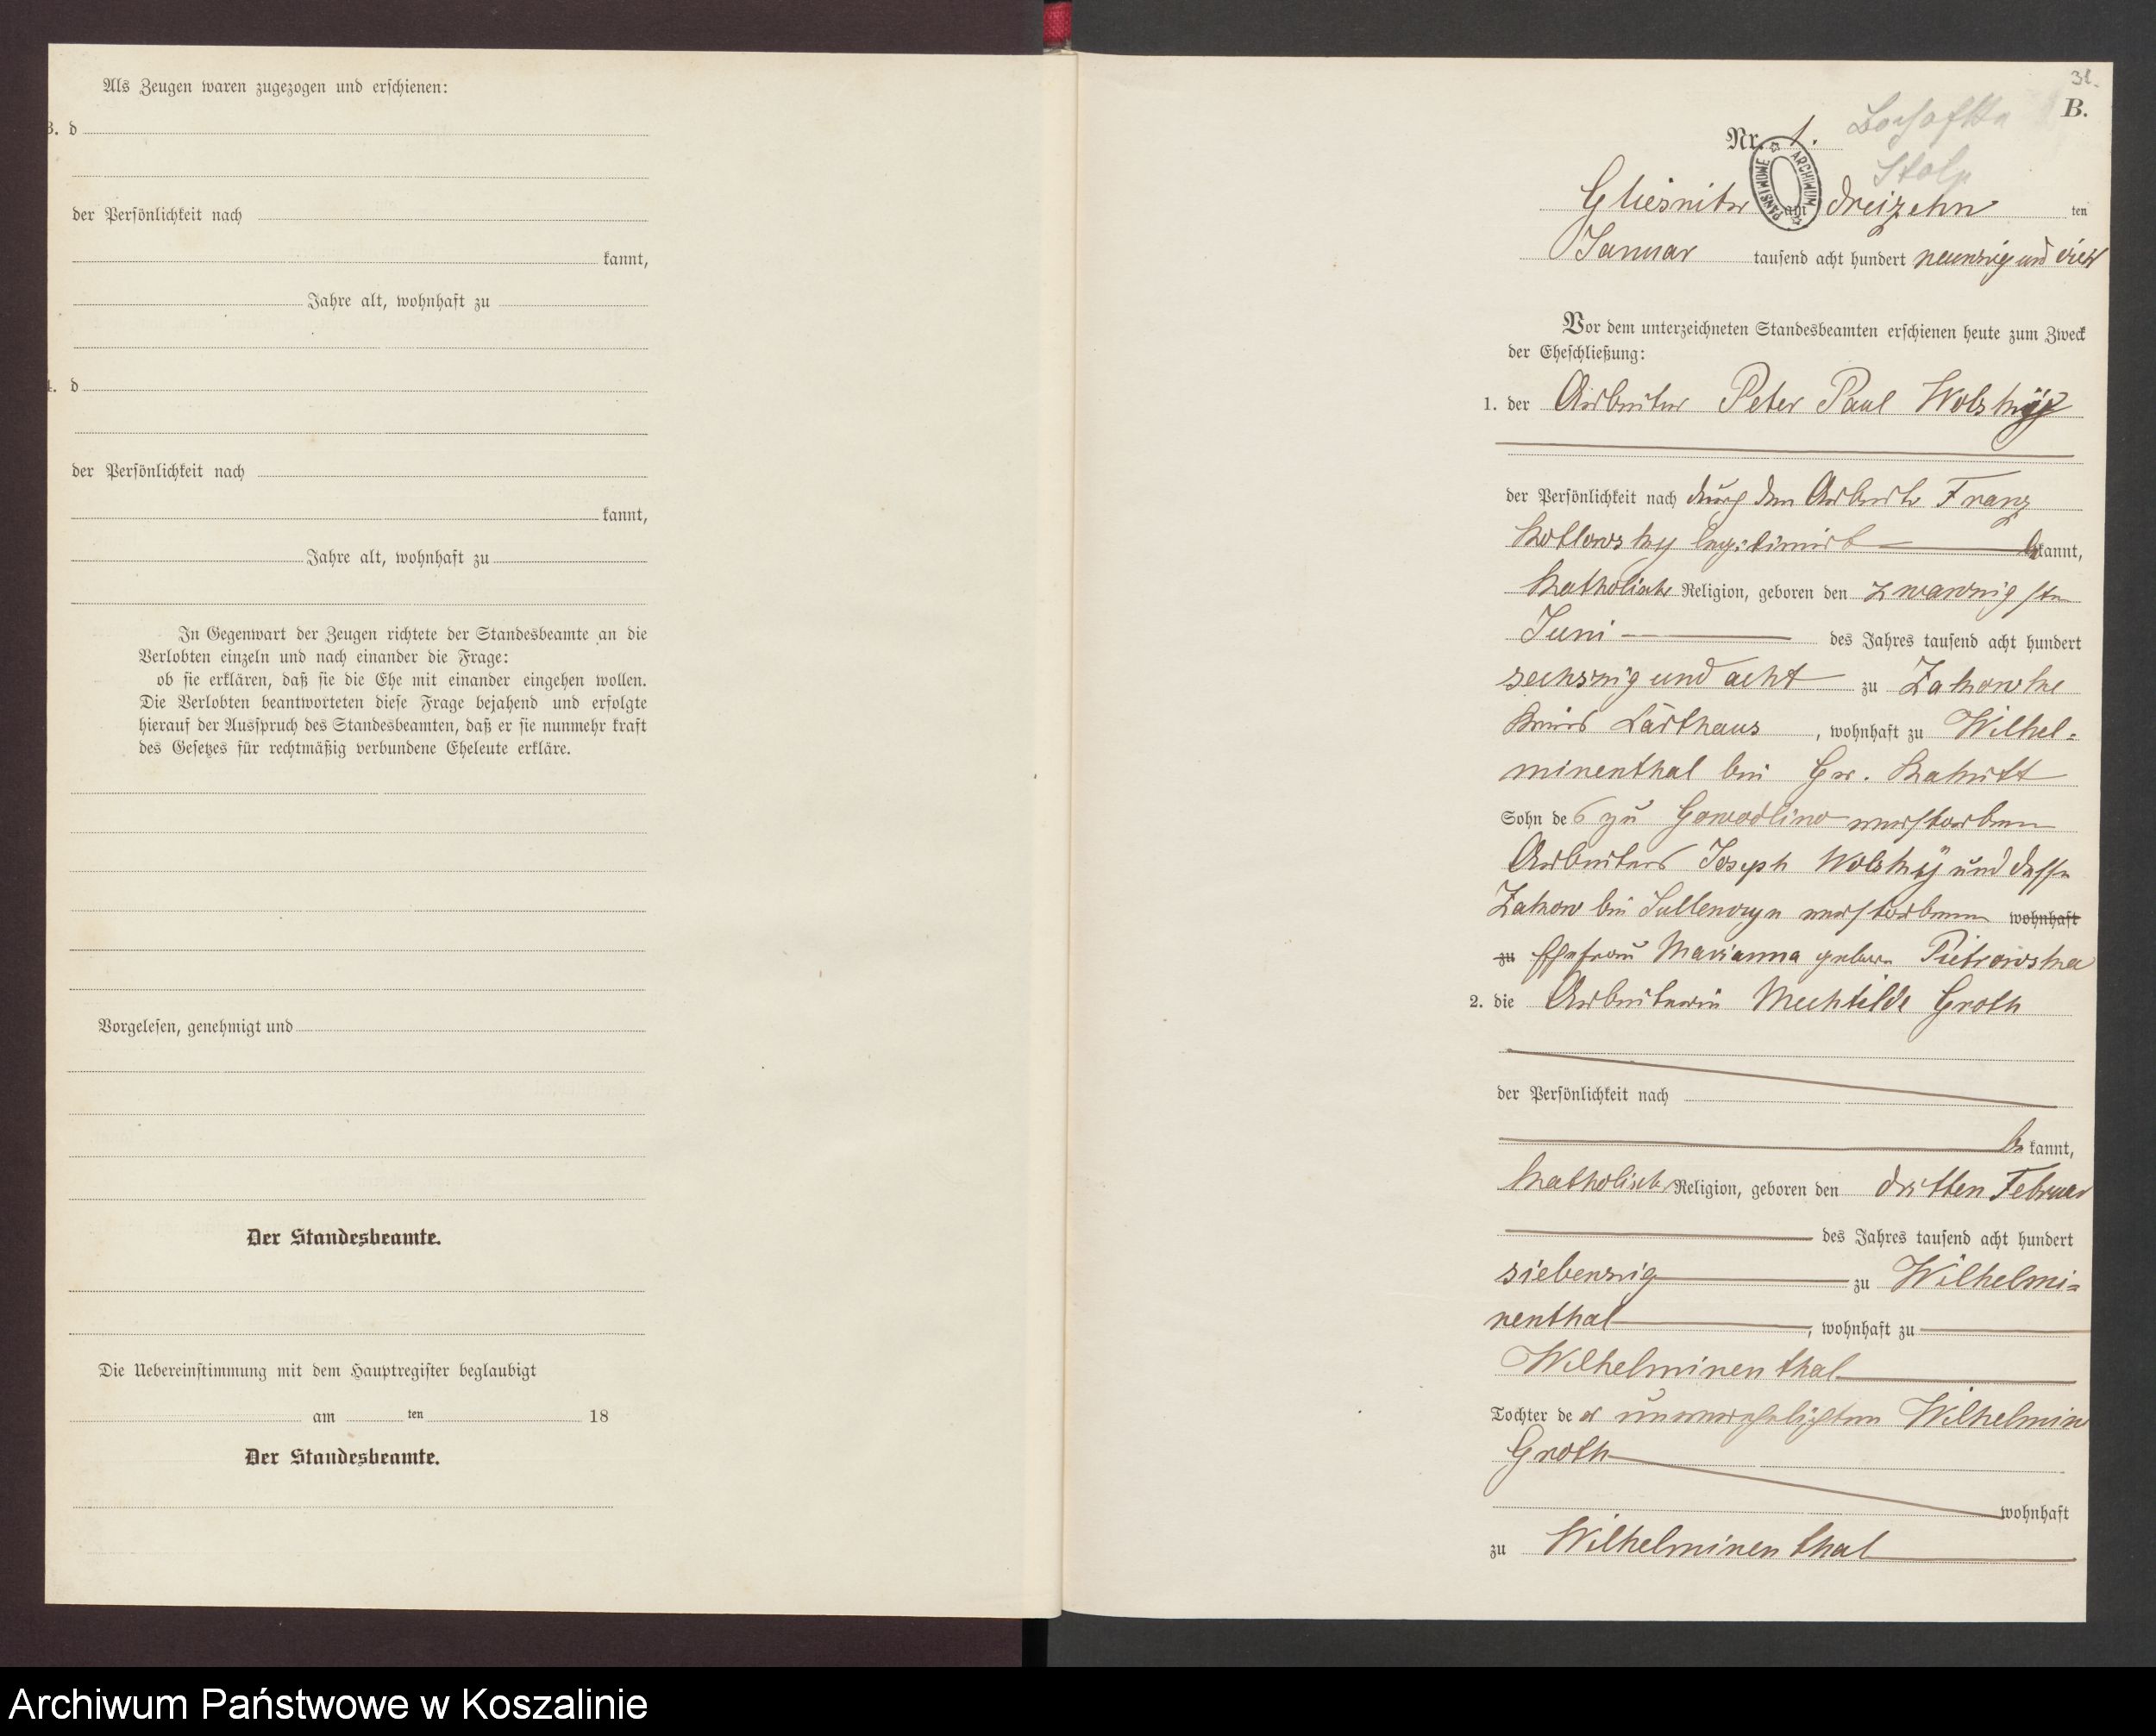 Als Zeugen waren zugezogen und erschienen:
3. d
der Persönlichkeit nach
kannt,
Jahre alt, wohnhaft zu
4. d
der Persönlichkeit nach
kannt,
Jahre alt, wohnhaft zu
In Gegenwart der Zeugen richtete der Standesbeamte an die
Verlobten einzeln und nach einander die Frage:
ob sie erklären, daß sie die Ehe mit einander eingehen wollen.
Die Verlobten beantworteten diese Frage bejahend und erfolgte
hierauf der Ausspruch des Standesbeamten, daß er sie nunmehr kraft
des Gesetzes für rechtmäßig verbundene Eheleute erkläre.
Vorgelesen, genehmigt und
Der Standesbeamte.
Die Uebereinstimmung mit dem Hauptregister beglaubigt
am ten 18
Der Standesbeamte.
31.
B.
Nr. 1.
Stolp
ARCHIWUM PAŃSTWOWE
Gliesnitz am dreizehn ten
Januar tausend acht hundert neunzig und vier
Vor dem unterzeichneten Standesbeamten erschienen heute zum Zweck
der Eheschließung:
1. der Arbeiter Peter Paul Wolsky
der Persönlichkeit nach durch den Arbeiter Franz
Kotlowsky legitimirt bekannt,
katholischer Religion, geboren den zwanzigsten
Juni des Jahres tausend acht hundert
sechszig und acht zu Zakowke
Kreis Carthaus, wohnhaft zu Wilhel-
minenthal bei Gr. Rakitt
Sohn des zu Gowodlino verstorbenen
Arbeiters Joseph Wolsky und dessen
Zakow bei Sullenczyn verstorbenen wohnhaft
zu Ehefrau Marianna geborn Pietrowska
2. die Arbeiterin Mechtilde Groth
der Persönlichkeit nach
bekannt,
katholischer Religion, geboren den dritten Februar
des Jahres tausend acht hundert
siebenzig zu Wilhelmi-
nenthal, wohnhaft zu
Wilhelminenthal
Tochter der unverehelichten Wilhelmine
Groth
wohnhaft
zu Wilhelminenthal
Archiwum Państwowe w Koszalinie